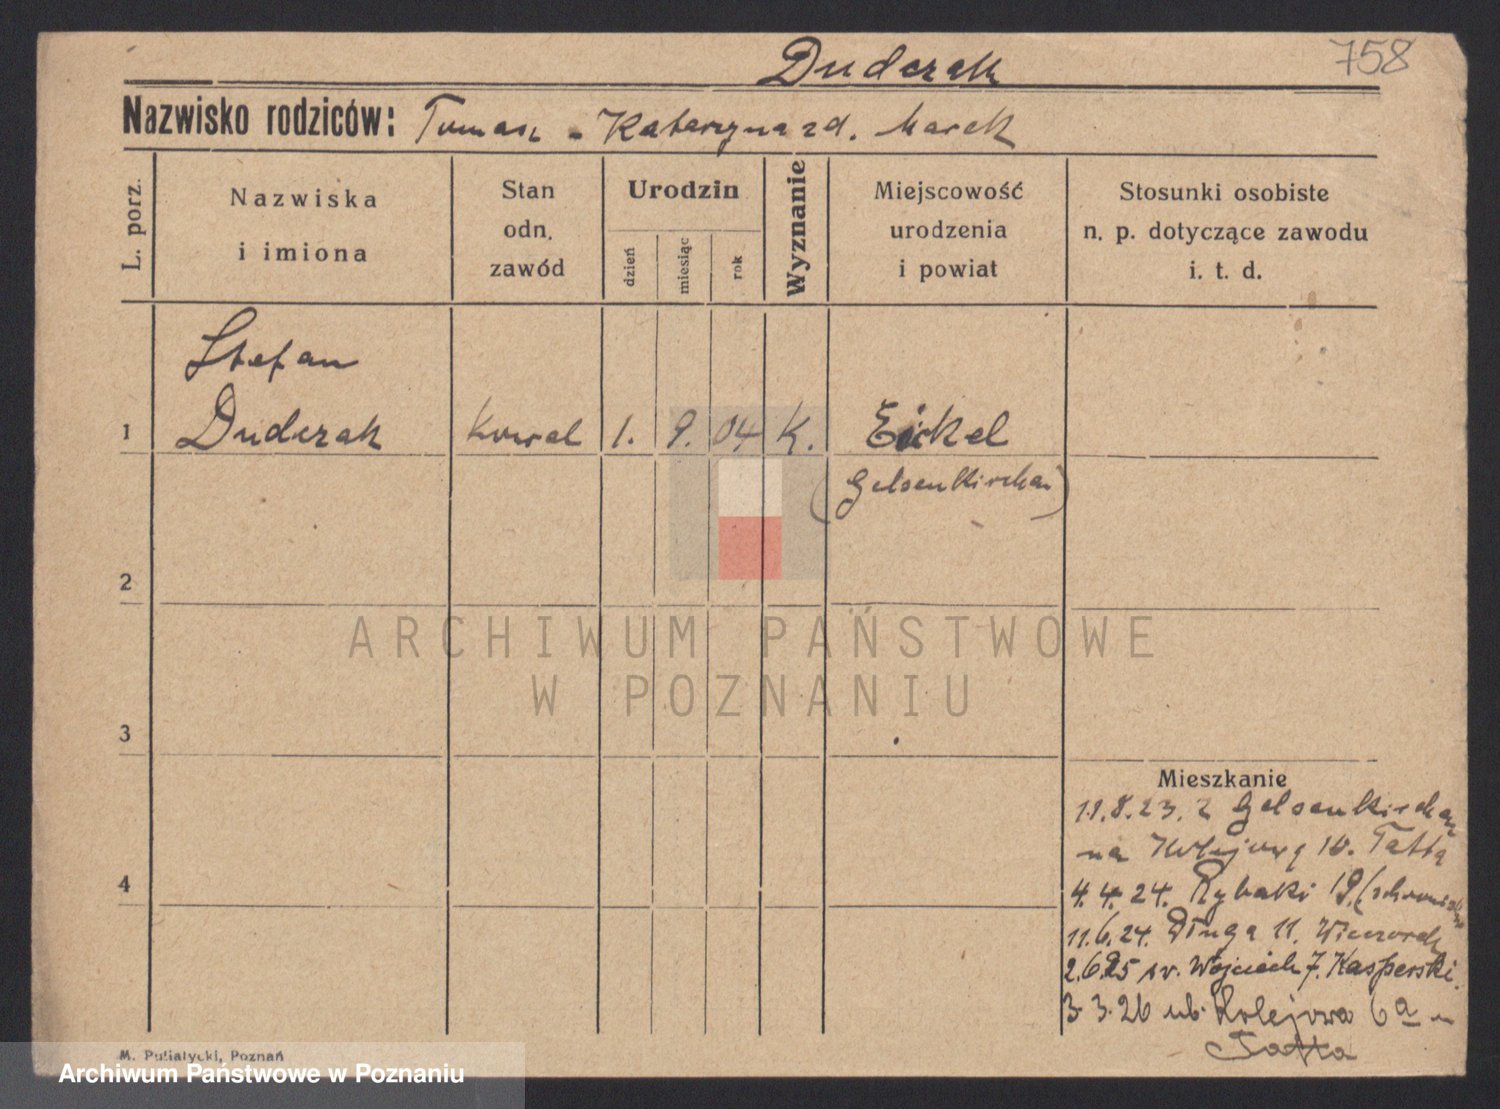 758
Dudczak
Nazwisko rodziców: Tomasz - Katarzyna zd. Marek
L. porz.
Nazwiska
i imiona
Stan
odn.
zawód
Urodzin
dzień
miesiąc
rok
Wyznanie
Miejscowość
urodzenia
i powiat
Stosunki osobiste
n. p. dotyczące zawodu
i. t. d.
Stefan
1 Dudczak Kowal 1. 9. 04 K. Eickel
(Gelsenkirchen)
2
ARCHIWUM PAŃSTWOWE
W POZNANIU
3
4
Mieszkanie
18.8.23. z Gelsenkirchen
na Kolejową 10. Tatta
4.4.24. Rybaki 19. (schronisko
11.6.24. Długa 11. Wieczorek
2.6.25 św. Wojciech 7. Kasperski.
3.3.26 ul. Kolejowa 6a u
Tatta
M. Putiatycki, Poznań
Archiwum Państwowe w Poznaniu